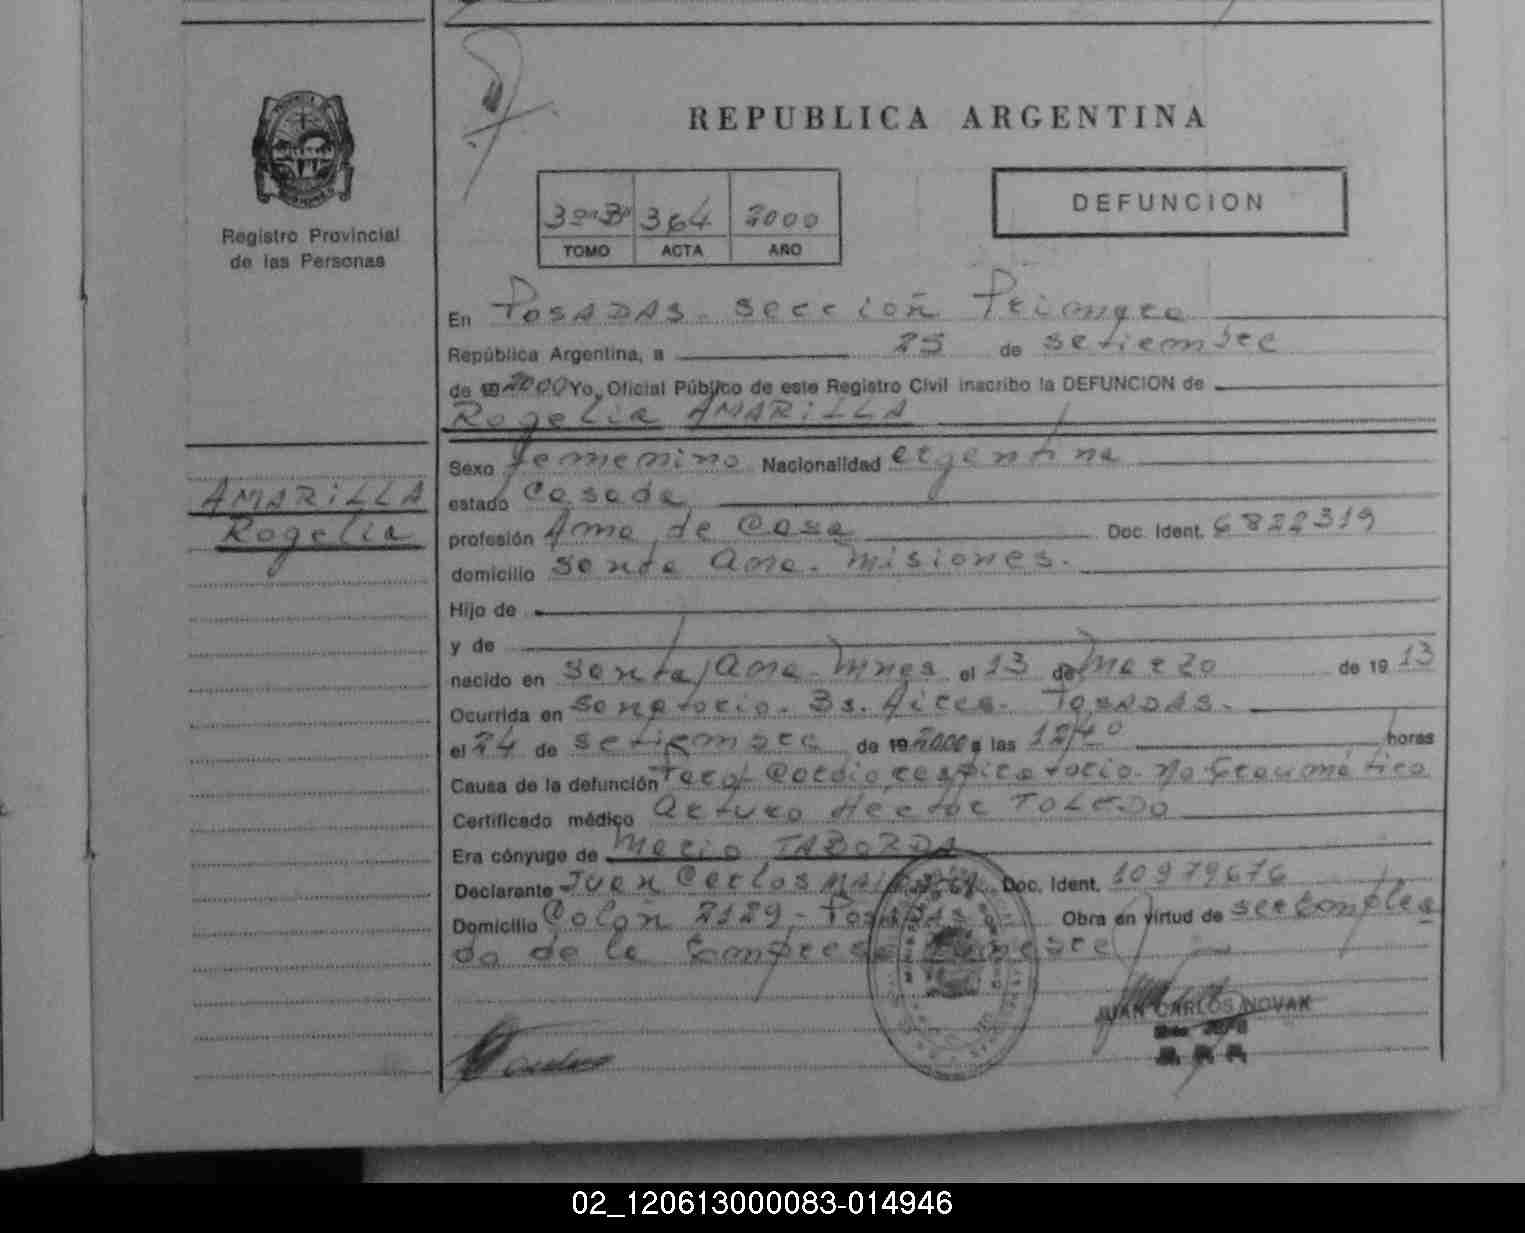 REPUBLICA ARGENTINA
Registro Provincial
de las Personas
3º "B" 364 2000
TOMO ACTA AÑO
DEFUNCION
En Posadas. Sección Primera
República Argentina, a 25 de setiembre
de 19 2000 Yo, Oficial Público de este Registro Civil inscribo la DEFUNCION de
Rogelia AMARiLLA
AMARiLLA
Rogelia
Sexo femenino Nacionalidad argentina
estado Casada
profesión Ama de Casa Doc. Ident. 6822319
domicilio Santa Ana. Misiones.
Hijo de
y de
nacido en Santa Ana. Mnes el 13 de Marzo de 19 13
Ocurrida en Sanatorio. Bs. Aires. Posadas.
el 24 de setiembre de 19 2000 a las 12/40 horas
Causa de la defunción Paro Cardio respiratorio. No traumático
Certificado médico Arturo Hector TOLEDO
Era cónyuge de Mario TABORDA
Declarante Juan Carlos Doc. Ident. 10979676
Domicilio Colón 2129 - Posadas Obra en virtud de ser emplea
do de la Empresa
JUAN CARLOS NOVAK
02_120613000083-014946